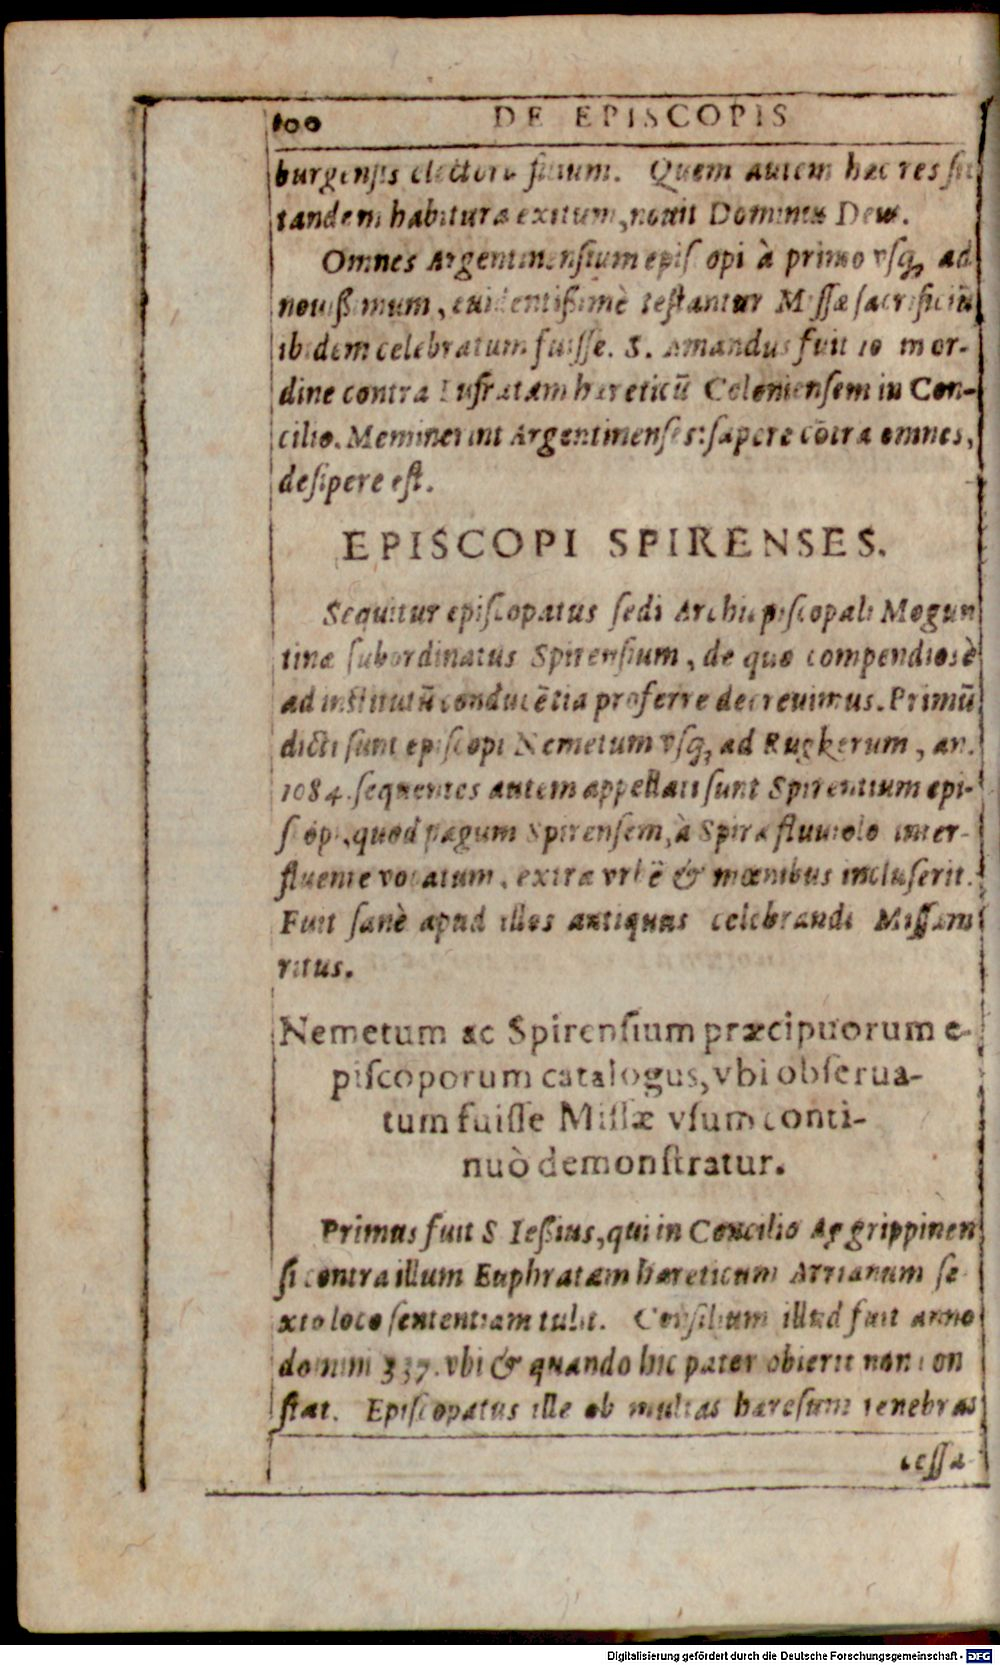 100 DE EPISCOPIS
burgensis electore suum. Quem autem hæc res sit
tandem habitura exitum, nouit Dominus Deus.
Omnes Argentinensium episcopi à primo vsq; ad
nouißimum, euidentißimè testantur Missæ sacrificiū
ibidem celebratum fuisse. S. Amandus fuit 10 in or-
dine contra Eufratam hæreticū Coloniensem in Con-
cilio. Meminerint Argentinenses: sapere cōtra omnes,
desipere est.
EPISCOPI SPIRENSES.
Sequitur episcopatus sedi Archiepiscopali Mogun
tinæ subordinatus Spirensium, de quo compendiosè
ad institutū conducētia proferre decreuimus. Primū
dicti sunt episcopi Nemetum vsq; ad Rugkerum, an.
1084. sequentes autem appellati sunt Spirentium epi-
scopi, quod pagum Spirensem, à Spira fluuiolo inter-
fluente vocatum, extra vrbē & mœnibus incluserit.
Fuit sanè apud illos antiquus celebrandi Missam
ritus.
Nemetum ac Spirensium præcipuorum e-
piscoporum catalogus, vbi obserua-
tum fuisse Missæ vsum conti-
nuò demonstratur.
Primus fuit S Ießius, qui in Concilio Aggrippinen
si contra illum Euphratam hæreticum Arrianum se
xto loco sententiam tulit. Consilium illud fuit anno
domini 337. vbi & quando hic pater obierit non con
stat. Episcopatus ille ob multas hæresum tenebras
cessa
Digitalisierung gefördert durch die Deutsche Forschungsgemeinschaft - DFG